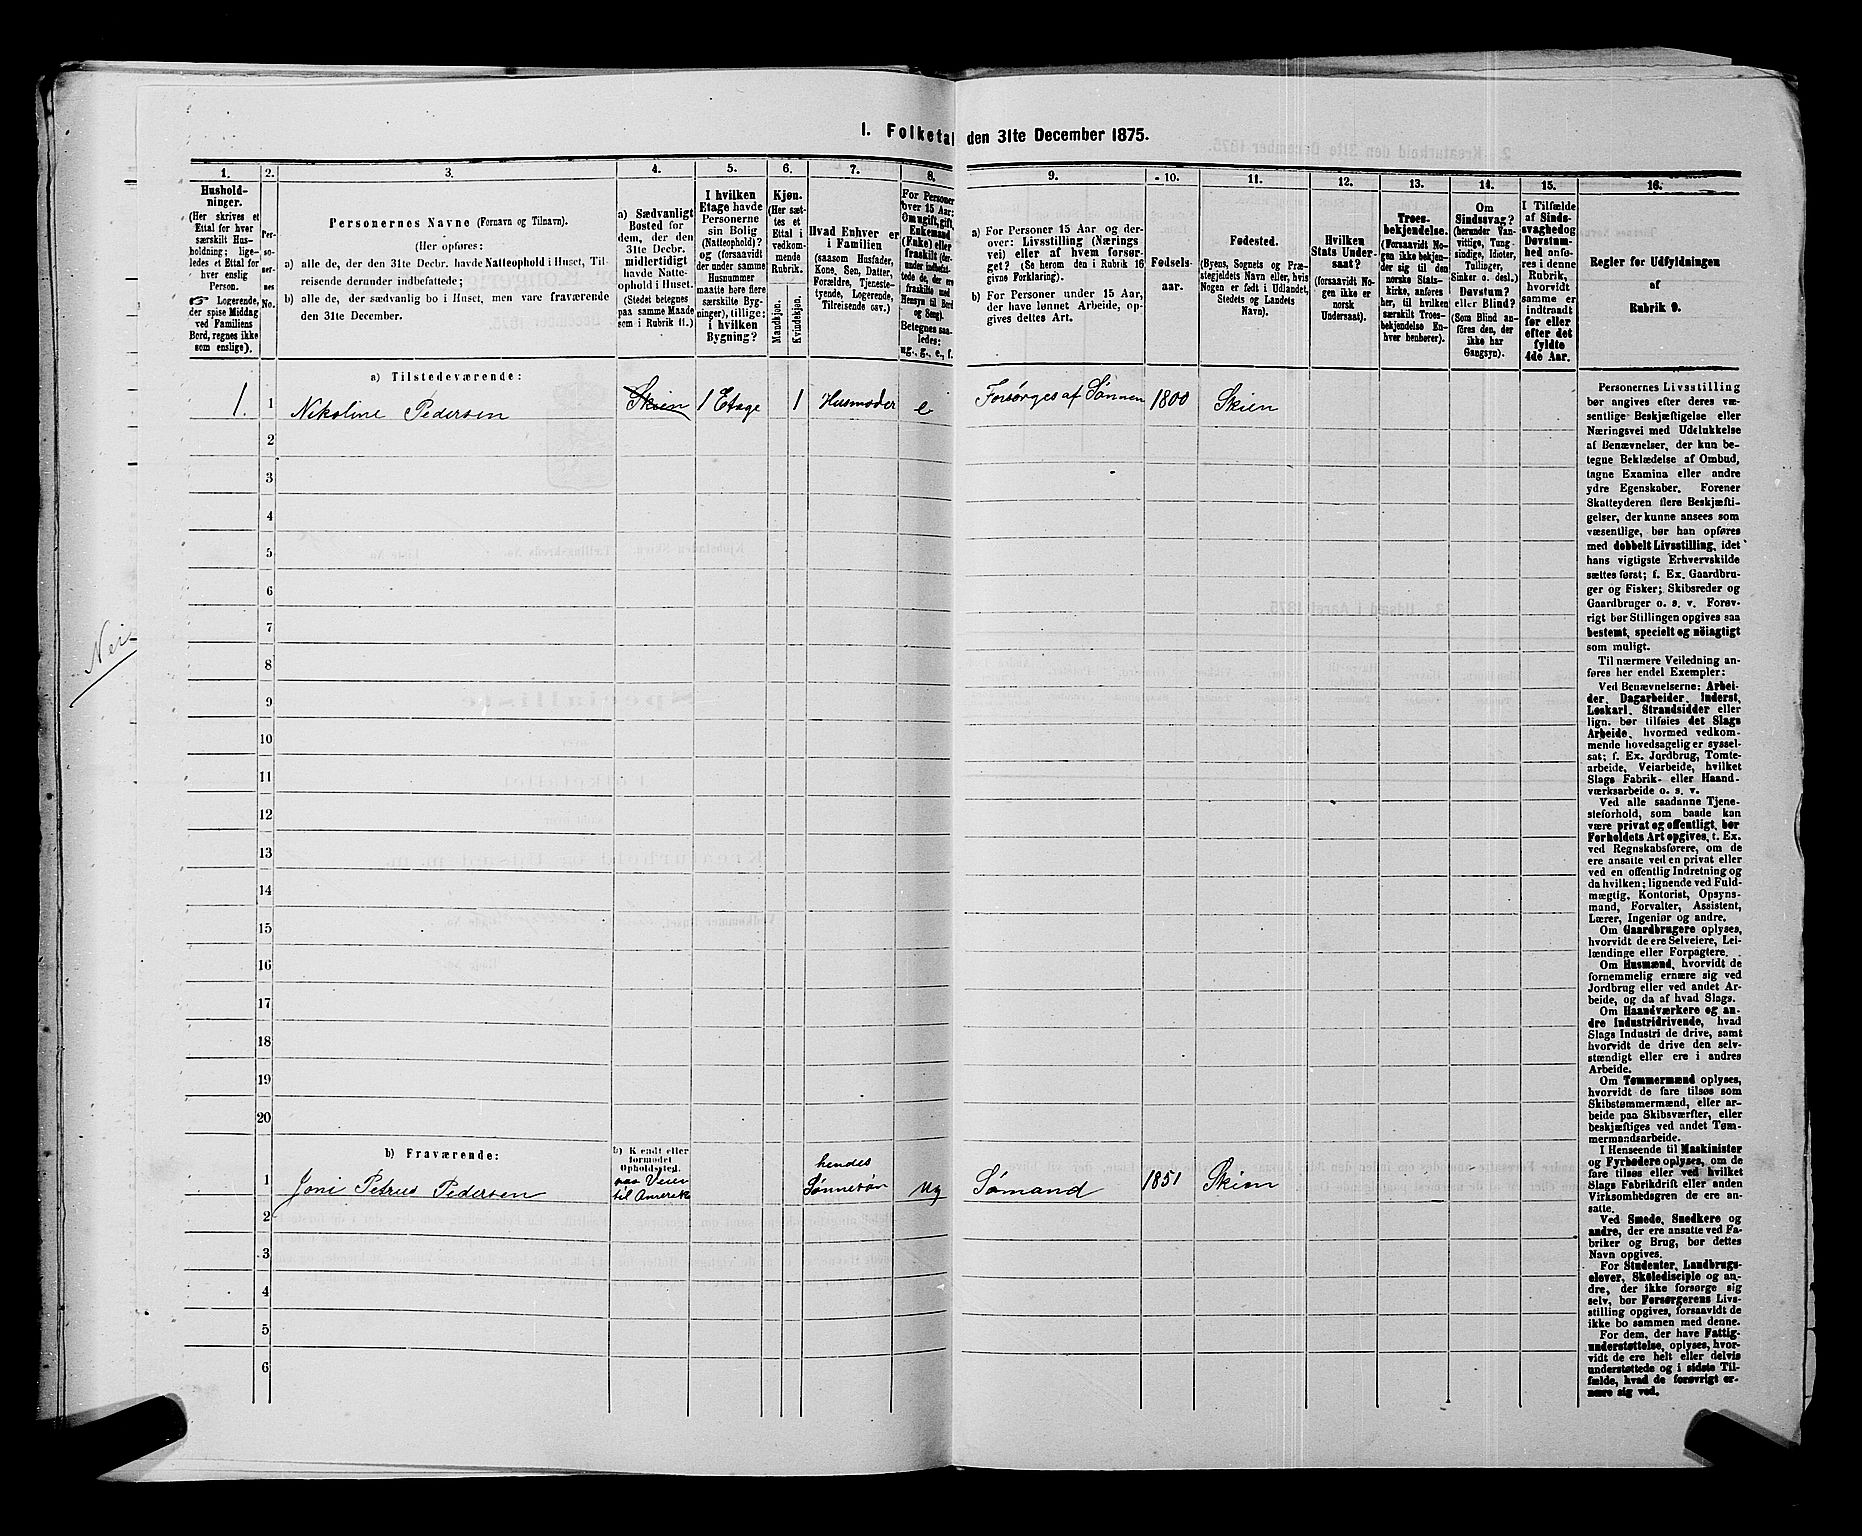 I. Folketal den 31te December 1875.
1.
Hushold-
ninger.
(Her skrives et
Ettal for hver
særskilt Hus-
holdning; lige-
ledes et Ettal for
hver enslig
Person.
☞ Logerende,
der spise Middag
ved Familiens
Bord, regnes ikke
som enslige).
2.
Per-
so-
ner-
nes
No.
3.
Personernes Navne (Fornavn og Tilnavn).
(Her opføres:
a) alle de, der den 31te Decbr. havde Natteophold i Huset, Til-
reisende derunder indbefattede;
b) alle de, der sædvanlig bo i Huset, men vare fraværende
den 31te December.
4.
a) Sædvanligt
Bosted for
dem, der den
31te Decbr.
midlertidigt
havde Natte-
ophold i Huset.
(Stedet betegnes
paa samme Maade
som i Rubrik 11.)
5.
I hvilken
Etage havde
Personerne
sin Bolig
(Natteophold)?
og (forsaavidt
der under samme
Husnummer
maatte høre flere
særskilte Byg-
ninger), tillige:
i hvilken
Bygning?
6.
Kjøn.
(Her sæt-
tes et
Ettal i
vedkom-
mende
Rubrik.
Mandkjøn.
Kvindekjøn.
7.
Hvad Enhver er
i Familien
(saasom Husfader,
Kone, Søn, Datter,
Forældre, Tjeneste-
tyende, Logerende,
Tilreisende osv.)
8.
For Personer
over 15 Aar:
Om ugift, gift,
Enkemand
(Enke) eller
fraskilt (der-
under indbefat-
tede de, der ere
fraskilte med
Hensyn til Bord
og Seng).
Betegnes saa-
ledes:
ug., g., e., f.
9.
a) For Personer 15 Aar og der-
over: Livsstilling (Nærings
vei) eller af hvem forsør-
get? (Se herom den i Rubrik 16
givne Forklaring).
b) For Personer under 15 Aar,
der have lønnet Arbeide, op-
gives dettes Art.
10.
Fødsels-
aar.
11.
Fødested.
(Byens, Sognets og Præ-
stegjeldets Navn eller, hvis
Nogen er født i Udlandet,
Stedets og Landets
Navn).
12.
Hvilken
Stats Under-
saat?
(forsaavidt No-
gen ikke er
norsk
Undersaat).
13.
Troes-
bekjendelse.
(Forsaavidt No-
gen ikke bekjen-
der sig til den
norske Stats-
kirke, anføres
her, til hvilken
særskilt Troes-
bekjendelse En-
hver henhører).
14.
Om
Sindssvag?
(herunder Van-
vittige, Tung-
sindige, Idioter,
Tullinger,
Sinker o. desl.)
Døvstum?
eller Blind?
(Som Blind an-
føres den, der
ikke har
Gangsyn).
15.
I Tilfælde
af Sinds-
svaghed og
Døvstum-
hed anfø-
res i denne
Rubrik,
hvorvidt
samme er
indtraadt
før eller
efter det
fyldte
4de Aar.
16.
Regler for Udfyldningen
af
Rubrik 9.
a) Tilstedeværende:
1. 1 Nikoline Pedersen Skien 1 Etage 1 Husmoder e Forsørges af Sønnen 1800 Skien
2
3
4
5
6
7
8
9
10
11
12
13
14
15
16
17
18
19
20
b) Fraværende:
b) Kjendt eller
formodet
Opholdssted.
1 Joni Petrus Pedersen paa Veien til Amerik hendes Sønnesøn Ug Sømand 1851 Skien
2
3
4
5
6
Nei
Personernes Livsstilling
bør angives efter deres væ-
sentlige Beskjæftigelse eller
Næringsvei med Udelukkelse
af Benævnelser, der kun be-
tegne Beklædelse af Ombud,
tagne Examina eller andre
ydre Egenskaber. Forener
Skatteyderen flere Beskjæfti-
gelser, der kunne ansees som
væsentlige, bør han opføres
med dobbelt Livsstilling, idet
hans vigtigste Erhvervskilde
sættes først; f. Ex. Gaardbru-
ger og Fisker; Skibsreder og
Gaardbruger o. s. v. Forøv-
rigt bør Stillingen opgives saa
bestemt, specielt og nöiagtigt
som muligt.
Til nærmere Veiledning an-
føres her endel Exempler:
Ved Benævnelserne: Arbei-
der, Dagarbeider, Inderst,
Løskarl, Strandsidder eller
lign. bør tilføies det Slags
Arbeide, hvormed vedkom-
mende hovedsagelig er syssel-
sat; f. Ex. Jordbrug, Tomte-
arbeide, Veiarbeide, hvilket
Slags Fabrik- eller Haand-
værksarbeide o. s. v.
Ved alle saadanne Tjene-
steforhold, som baade kan
være privat og offentligt, bør
Forholdets Art opgives, f. Ex.
ved Regnskabsførere, om de
ere ansatte ved en privat eller
ved en offentlig Indretning og
da hvilken; lignende ved Fuld-
mægtig, Kontorist, Opsyns-
mand, Forvalter, Assistent,
Lærer, Ingeniør og andre.
Om Gaardbrugere oplyses,
hvorvidt de ere Selveiere, Lei-
lændinge eller Forpagtere.
Om Husmænd, hvorvidt de
fornemmelig ernære sig ved
Jordbrug eller ved andet Ar-
beide, og da af hvad Slags.
Om Haandværkere og an-
dre Industridrivende, hvad
Slags Industri de drive, samt
hvorvidt de drive den selv-
stændigt eller ere i andres
Arbeide.
Om Tømmermænd oplyses,
hvorvidt de fare tilsøs som
Skibstømmermænd, eller ar-
beide paa Skibsværfter, eller
beskjæftiges ved andet Tøm-
mermandsarbeide.
I Henseende til Maskinister
og Fyrbødere oplyses, om de
fare tilsøs eller ved hvilket
Slags Fabrikdrift eller anden
Virksomhedsgren de ere an-
satte.
Ved Smede, Snedkere og
andre, der ere ansatte ved Fa-
briker og Brug, bør dettes
Navn opgives.
For Studenter, Landbrugs-
elever, Skoledisciple og an-
dre, der ikke forsørge sig
selv, bør Forsørgerens Livs-
stilling opgives, forsaavidt de
ikke bo sammen med denne.
For dem, der have Fattig-
understøttelse, oplyses, hvor-
vidt de ere helt eller delvis
understøttede og i sidste Til-
fælde, hvad de forøvrigt er-
nære sig ved.